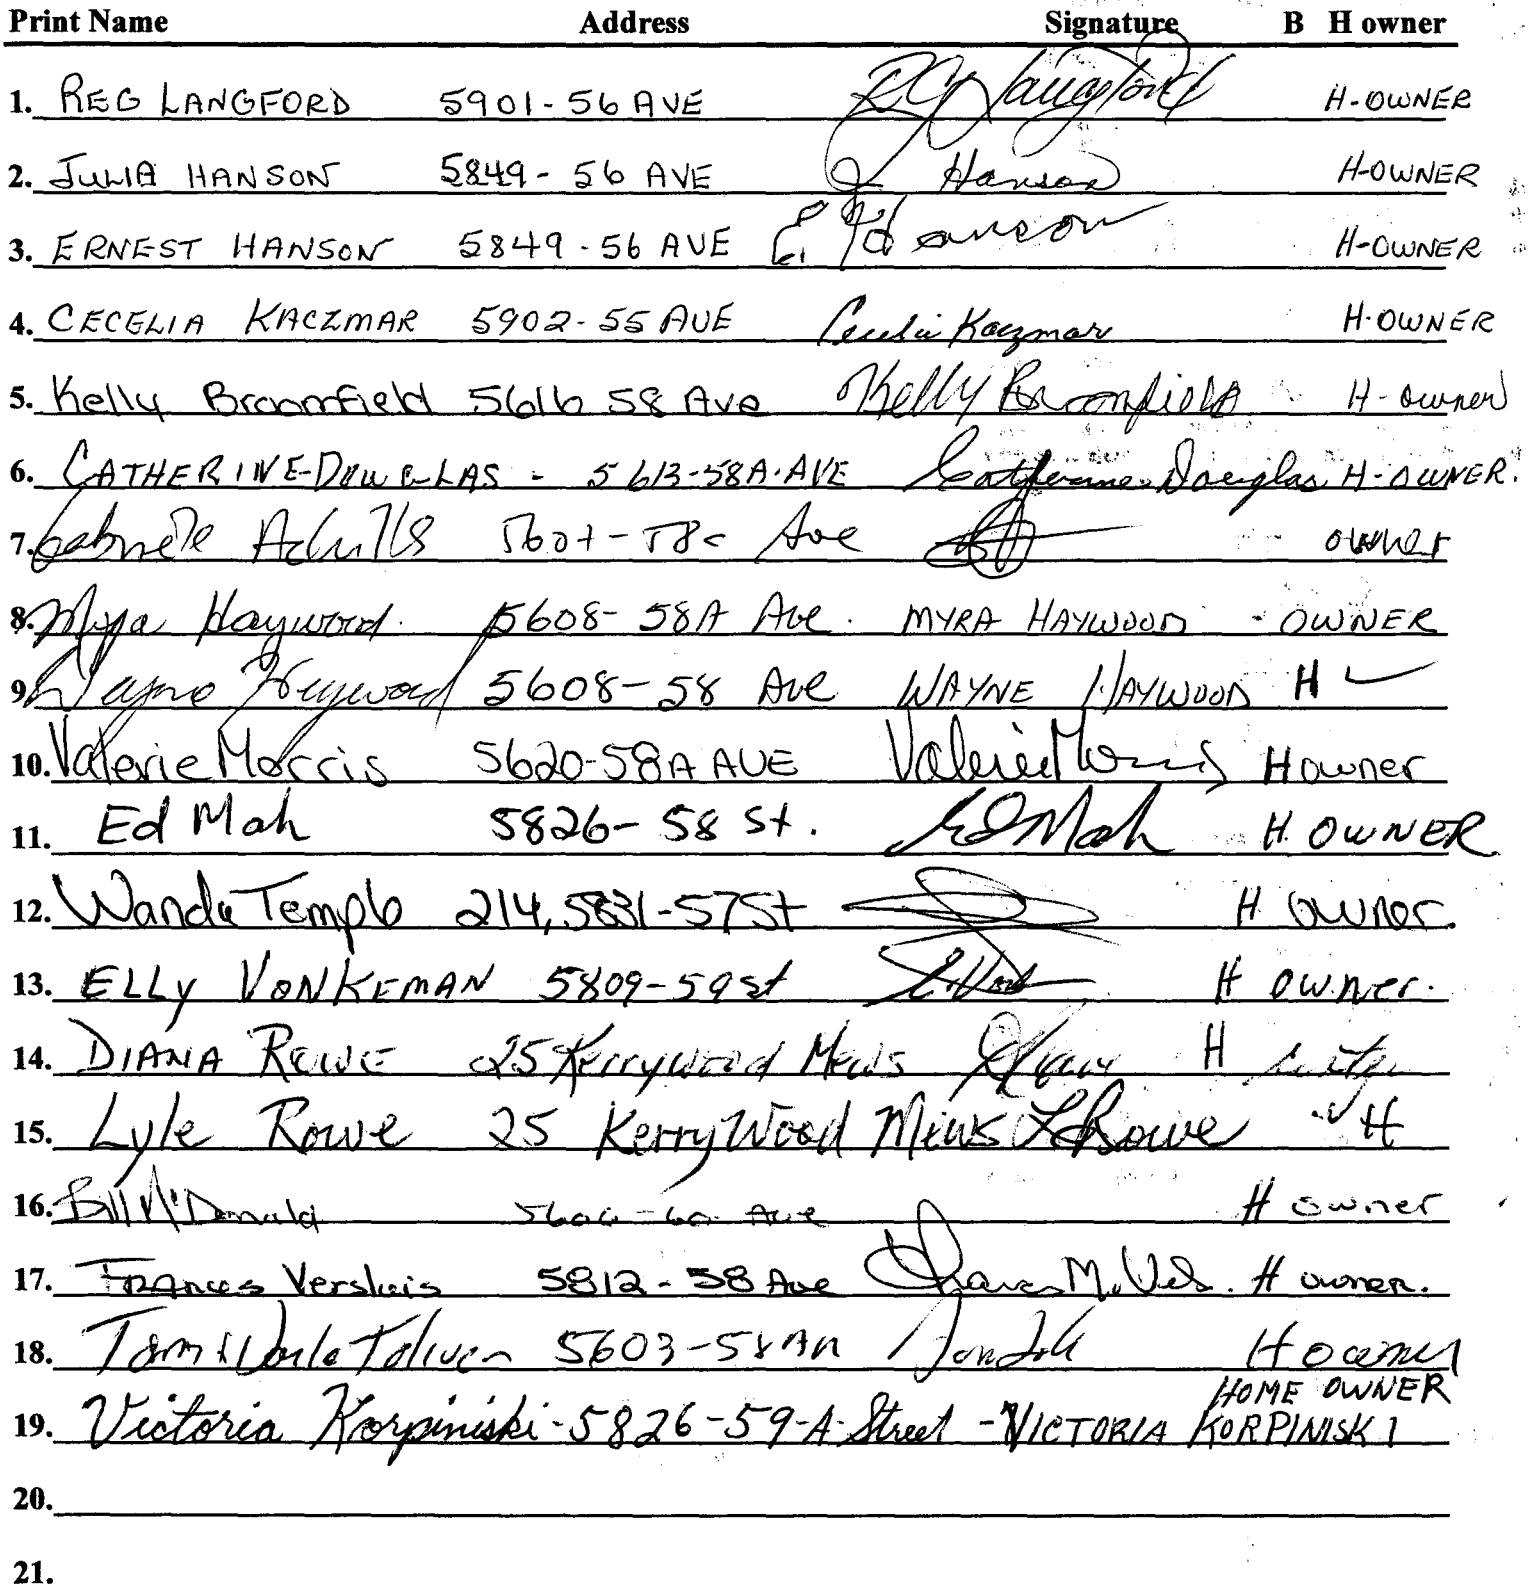 Print Name Address Signature B H owner
1. REG LANGFORD 5901-56 AVE RG Langford H-OWNER
2. JULIA HANSON 5849-56 AVE J Hanson H-OWNER
3. ERNEST HANSON 5849-56 AVE E. Hanson H-OWNER
4. CECELIA KACZMAR 5902-55 AVE Cecelia Kaczmar H-OWNER
5. Kelly Broomfield 5616 58 Ave Kelly Broomfield H-owner
6. CATHERINE-DOUGLAS - 5613-58A-AVE Catherine Douglas H-OWNER.
7. Ave owner
8. Myra Haywood. 5608-58A Ave. MYRA HAYWOOD - OWNER
9. Wayne Haywood 5608-58 Ave WAYNE HAYWOOD H
10. Valerie Morris 5620-58A AVE Valerie Morris H owner
11. Ed Mah 5826-58 St. Ed Mah H OWNER
12. Wanda Temple 214, 5831-57 St H owner.
13. ELLY VONKEMAN 5809-59 St H owner.
14. DIANA ROWE 25 Kerrywood Mews H
15. Lyle Rowe 25 KerryWood Mews L Rowe H
16. Bill McDonald Ave H owner
17. Frances Versluis 5812-58 Ave H owner.
18. Tom & 5603-58 H owner
HOME OWNER
19. Victoria Korpiniski-5826-59-A-Street -VICTORIA KORPINISKI
20.
21.